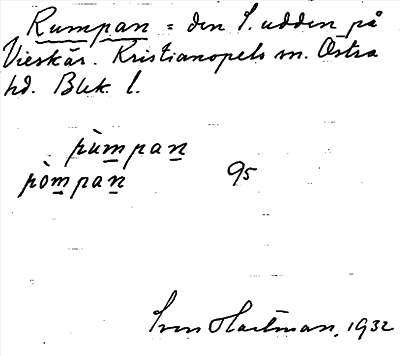 Rumpan = den S. udden på
Vieskär. Kristianopels sn. Östra
hd. Blek. l.
pùmpan
pòmpan 95
Sven Hartman, 1932